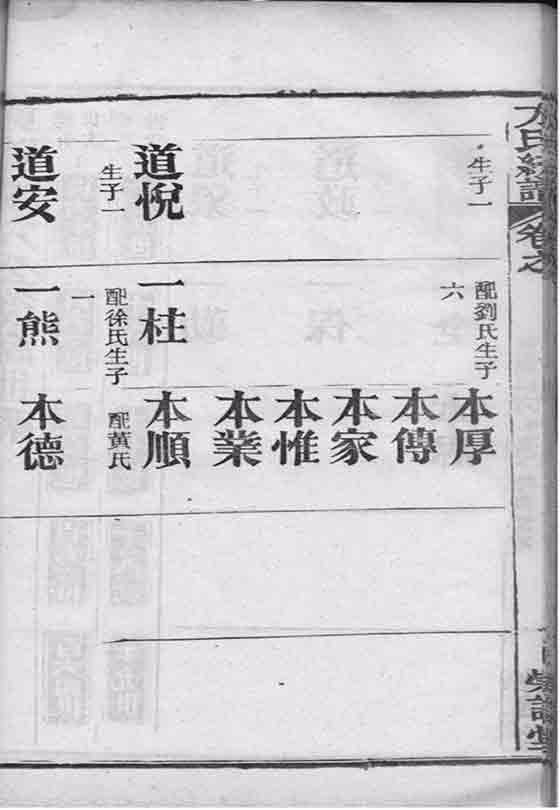 氏
譜
卷之
生子一
道悅
生子一
道安
配劉氏生子
六
一柱
配徐氏生子
一
一熊
本厚
本傳
本家
本惟
本業
本順
配黃氏
本德